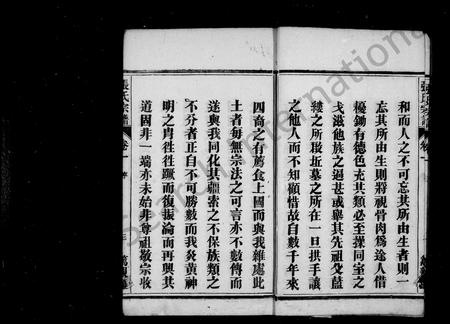 和而人之不可忘其所由生者則一
忘其所由生則將視骨肉為途人借
耰鋤有德色充其類必至操同室之
戈滋他族之逼甚或舉其先祖爰
之所邱墓之所在一旦拱手讓
之他人而不知顧惜故自數千年來
四裔之有薦食上國而與我雜處此
土者每無宗法之可言亦不數傳而
遂與我同化其疆索之不保族類之
不分者正自不可勝數而我炎黃神
明之胄往往蹶而復振淪而再興其
道固非一端亦未始非尊祖敬宗收
張氏宗譜
卷一
張氏宗譜 卷一 序
Research International